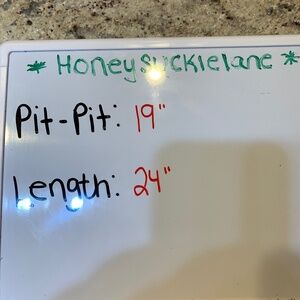 * Honeysucklelane *
Pit-Pit: 19"
Length: 24"